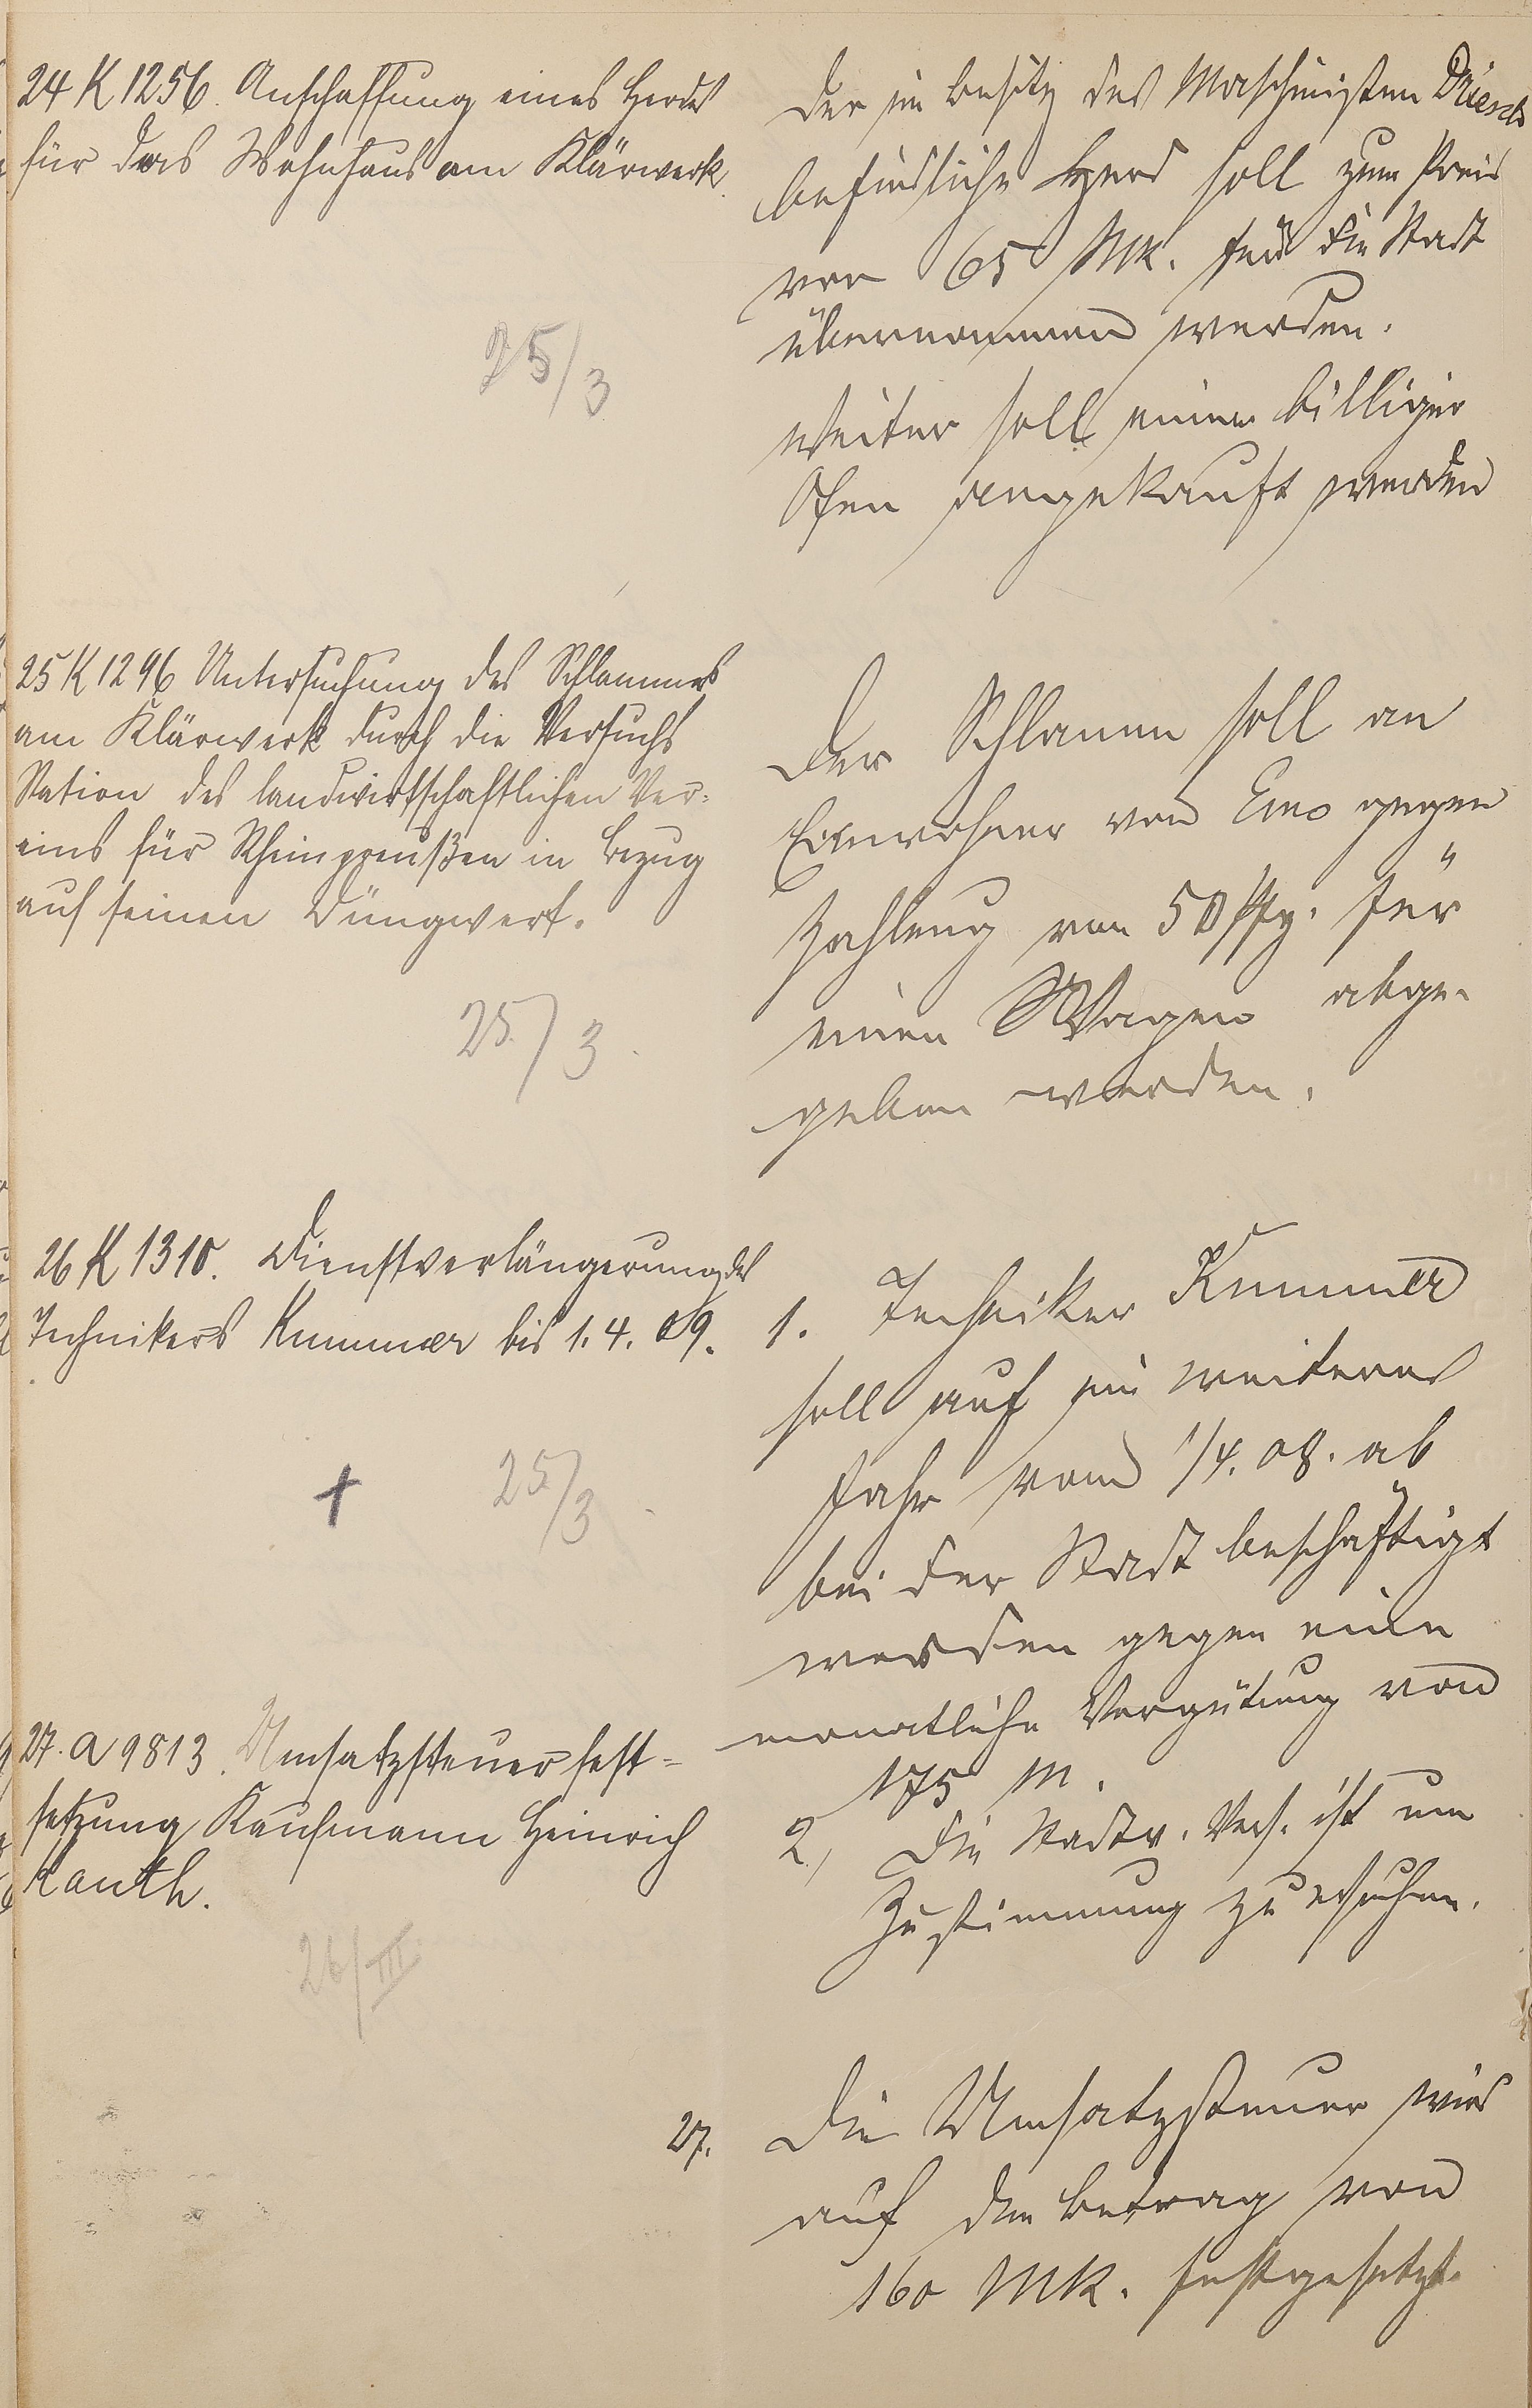 24 K 1256. Anschaffung eines Herdes
für das Wohnhaus am Klärwerk.
25/3
Der im Besitz des Maschinisten
befindliche Herd soll zum Preis
von 65 Mk. für die Stadt
übernommen werden.
Weiter soll ein billiger
Ofen angekauft werden
25 K 1296 Untersuchung des Schlammes
am Klärwerk durch die Versuchs
Station des landwirtschaftlichen Ver-
eins für Rheinpreußen in Bezug
auf seinen Düngwert.
25./3.
Der Schlamm soll an
Einwohner von Ems gegen
Zahlung von 50 Pfg. für
einen Wagen abge-
geben werden.
26 K 1310. Dienstverlängerung des
Technikers Kummer bis 1.4.09.
+ 25/3
1. Techniker Kummer
soll auf ein weiteres
Jahr vom 1/4.08. ab
bei der Stadt beschäftigt
werden gegen eine
monatliche Vergütung von
175 M.
2, Die Stadtv. Vers. ist um
Zustimmung zu ersuchen.
27. A 9813. Umsatzsteuerfest-
setzung Kaufmann Heinrich
Kauth.
26/III
27. Die Umsatzsteuer wird
auf den Betrag von
160 MK. festgesetzt.